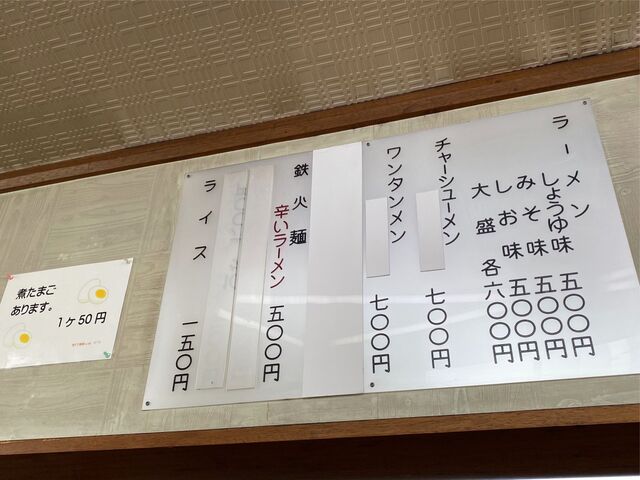 ラーメン
しょうゆ味 五〇〇円
みそ味 五〇〇円
しお味 五〇〇円
大盛各 六〇〇円
チャーシューメン 七〇〇円
ワンタンメン 七〇〇円
鉄火麺
辛いラーメン 五〇〇円
ライス 一五〇円
煮たまご
あります。
1ヶ50円